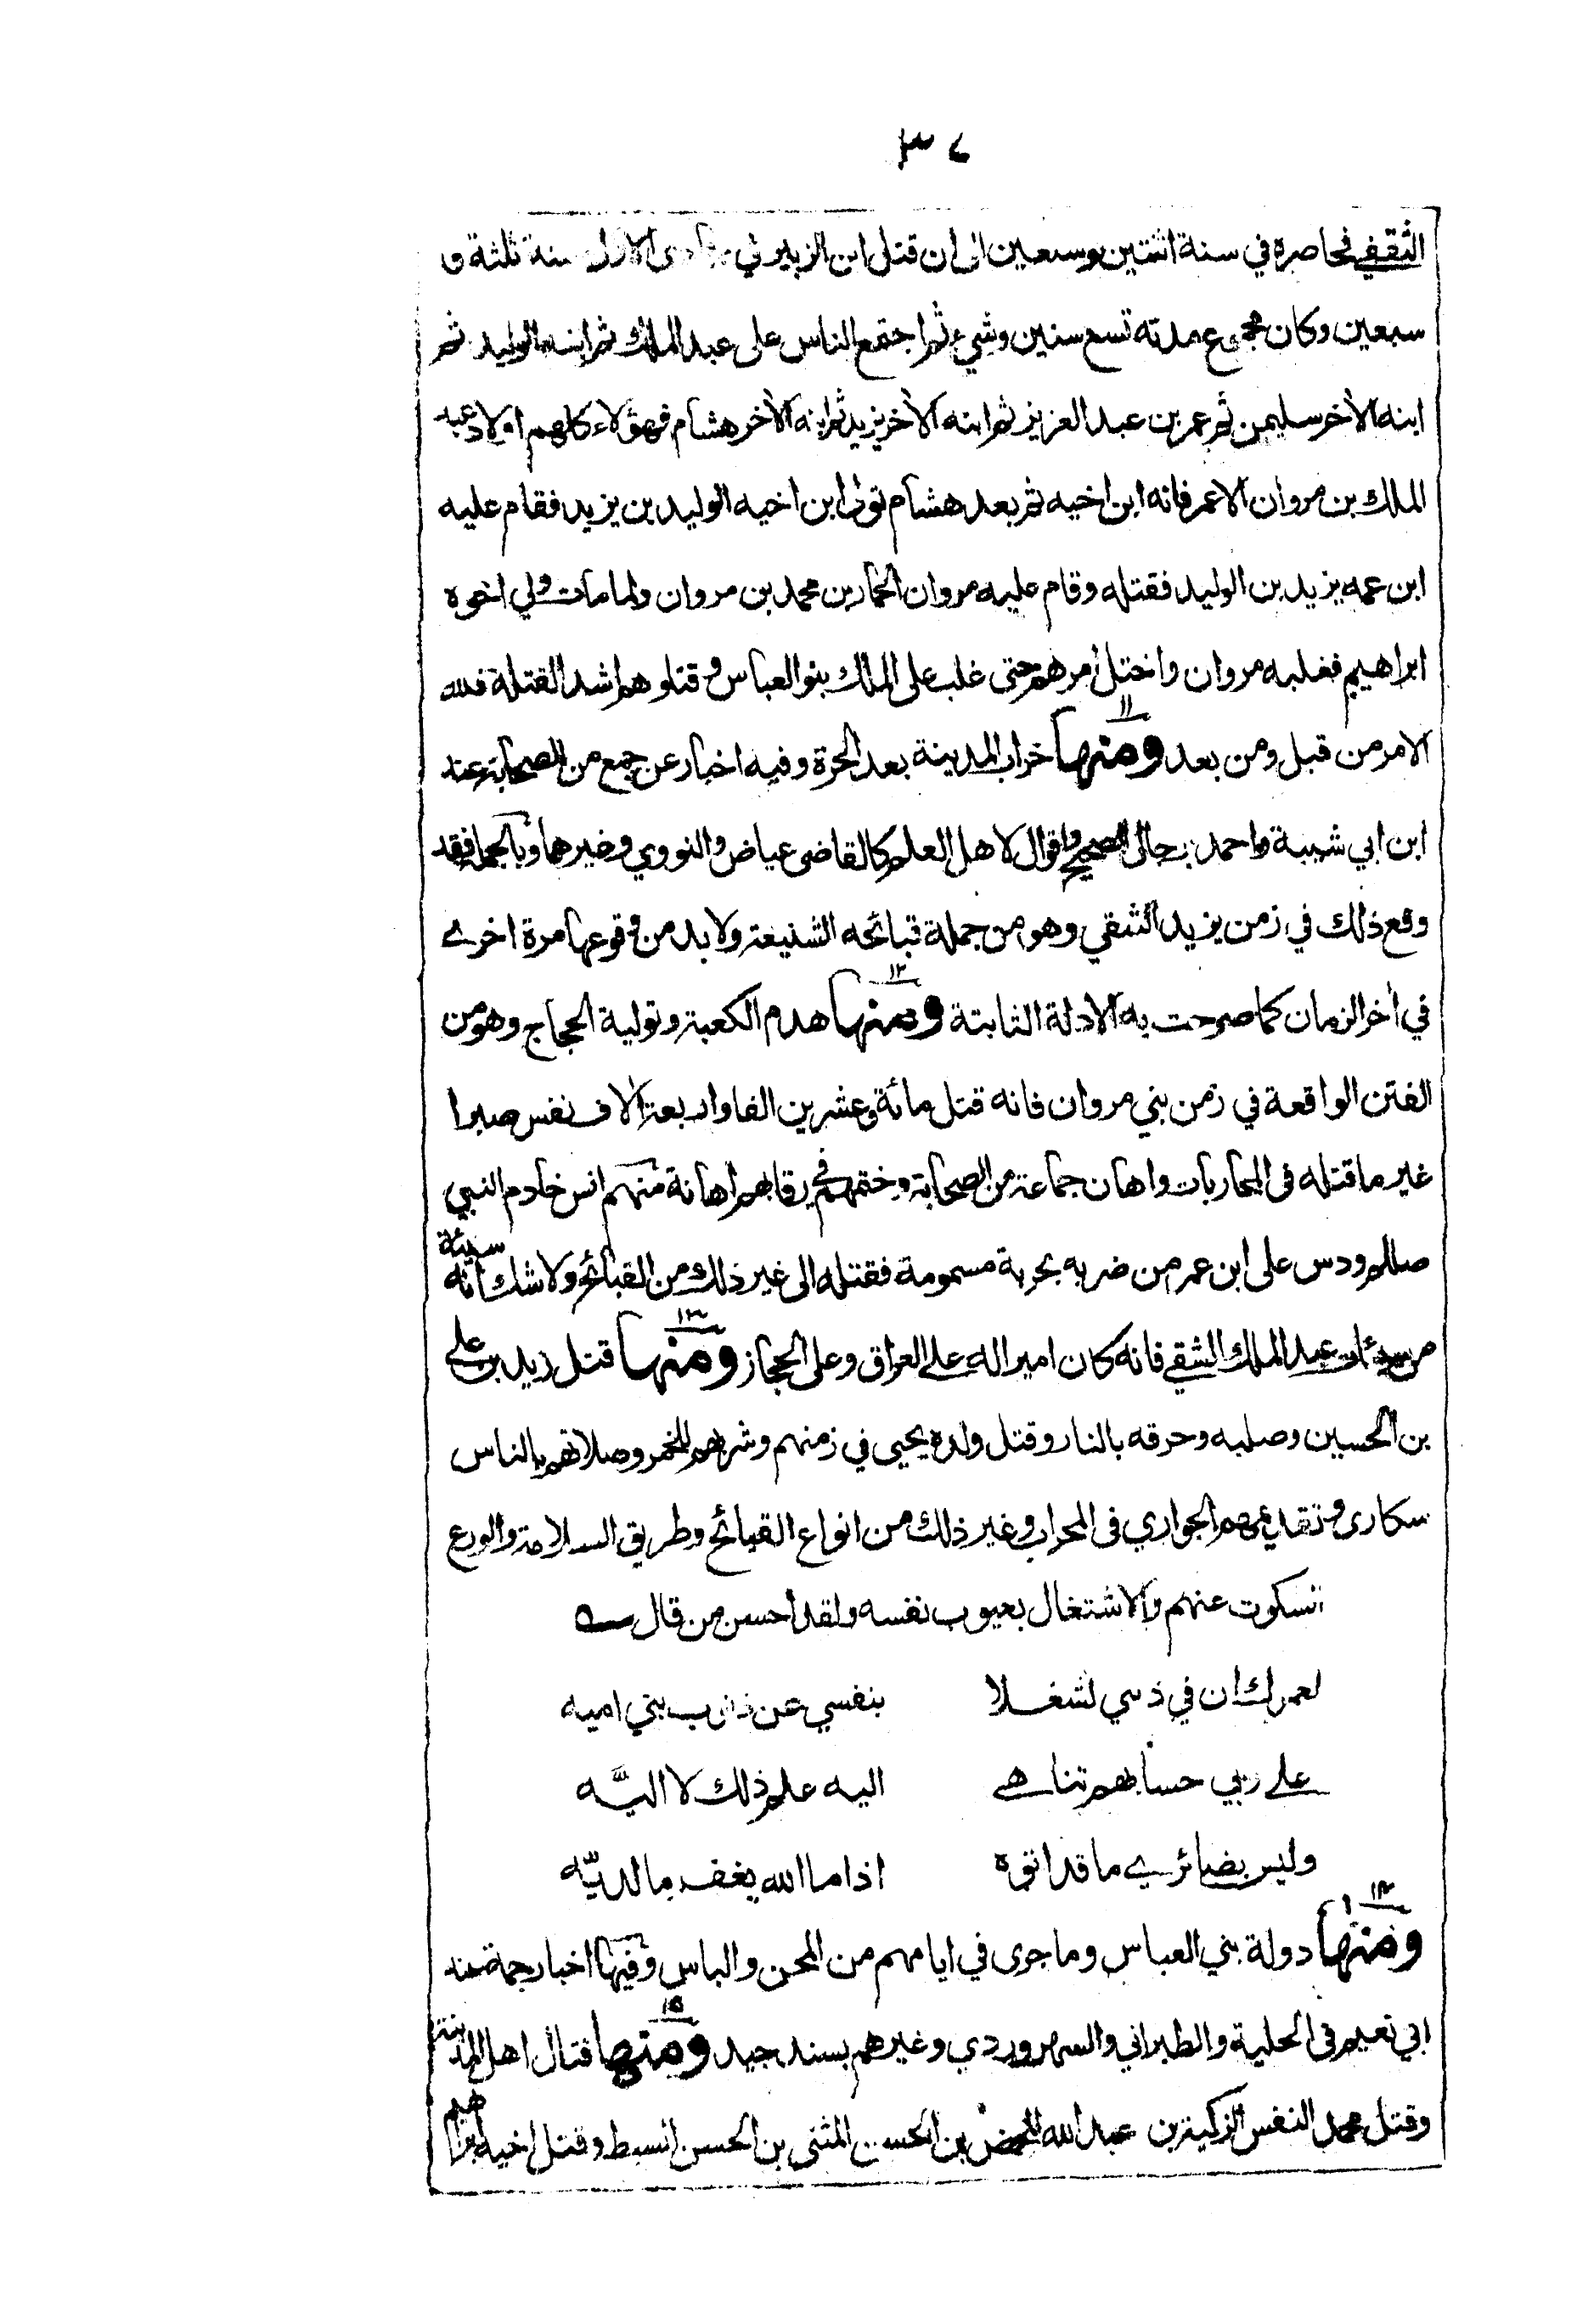 ٣٤
الثقفي فحاصره في سنة اثنتين وسبعين الى ان قتل ابن الزبير في جمادى الاولى سنة ثلثة و
سبعين وكان مجموع مدته تسع سنين وشيء ثم اجتمع الناس على عبد الملك ثم ابنه الوليد ثم
ابنه الأخر سليمن ثم عمر بن عبد العزيز ثم ابنه الأخر يزيد ثم ابنه الأخر هشام فهؤلاء كلهم اولاد عبد
الملك بن مروان الا عمر فانه ابن اخيه ثم بعد هشام تولى ابن اخيه الوليد بن يزيد فقام عليه
ابن عمه يزيد بن الوليد فقتله وقام عليه مروان الحمار بن محمد بن مروان ولما مات ولي اخوه
ابراهيم فغلبه مروان واختل أمرهم حتى غلب على الملك بنو العباس وقتلوهم اشد القتلة فلله
الامر من قبل ومن بعد ومنها ١١ خراب المدينة بعد الحرة وفيه اخبار عن جمع من الصحابة عند
ابن ابي شيبة واحمد برجال الصحيح واقوال لاهل العلم كالقاضى عياض والنووي وغيرهما وبالجملة فقد
وقع ذلك في زمن يزيد الشقي وهو من جملة قبائحه الشنيعة ولا بد من وقوعها مرة اخرى
في أخر الزمان كما صرحت به الادلة الثابتة ومنها ١٢ هدم الكعبة وتولية الحجاج وهو من
الفتن الواقعة في زمن بني مروان فانه قتل مائة وعشرين الفا واربعة الاف نفس صبرا
غير ما قتله فى المحاربات واهان جماعة من الصحابة وختمهم في رقابهم اهانة منهم انس خادم النبي
صللم ودس على ابن عمر من ضربه بحربة مسمومة فقتله الى غير ذلك من القبائح ولا شك أنه سيئة
من سيئات عبد الملك الشقي فانه كان امير اله على العراق وعلى الحجاز ومنها ١٣ قتل زيد بن على
بن الحسين وصلبه وحرقه بالنار وقتل ولده يحيى في زمنهم وشربهم للخمر وصلاتهم بالناس
سكارى وتقديمهم الجواري فى المحراب وغير ذلك من انواع القبائح وطريق السلامة والورع
السكوت عنهم والاشتغال بعيوب نفسه ولقد أحسن من قال
لعمرك ان في ذنبي لشغلا بنفسي عن ذنوب بني اميه
على ربي حسابهم تناهى اليه علم ذلك لا اليَّه
وليس بضائري ما قد اتوه اذا ما الله يغفر ما لديّه
ومنها ١٤ دولة بني العباس وما جرى في ايامهم من المحن والباس وفيها اخبار جمة عند
ابي نعيم فى الحلية والطبراني والسهروردي وغيرهم بسند جيد ومنها ١٥ قتال اهل المدينة
وقتل محمد النفس الزكية بن عبد الله المحض بن الحسن المثنى بن الحسن السبط وقتل اخيه ابراهيم